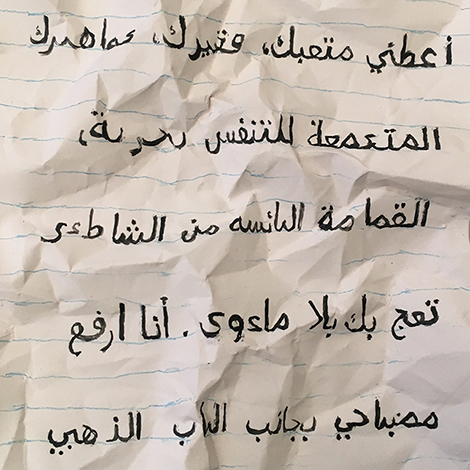 أعطني متعبك، فقيرك، جماهيرك
المتجمعة للتنفس بحرية،
القمامة البائسه من الشاطئ
تعج بك بلا مأوى. أنا ارفع
مصباحي بجانب الباب الذهبي